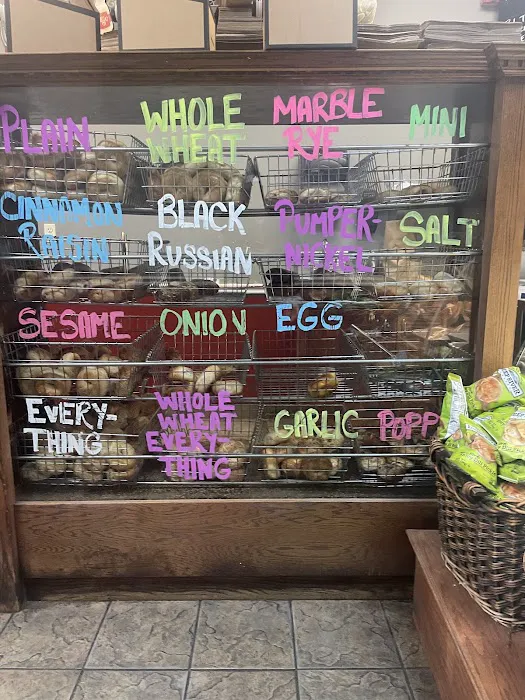 PLAIN
WHOLE
WHEAT
MARBLE
RYE
MINI
CINNAMON
RAISIN
BLACK
RUSSIAN
PUMPER-
NICKEL
SALT
SESAME
ONION
EGG
EVERY-
THING
WHOLE
WHEAT
EVERY-
THING
GARLIC
POPP